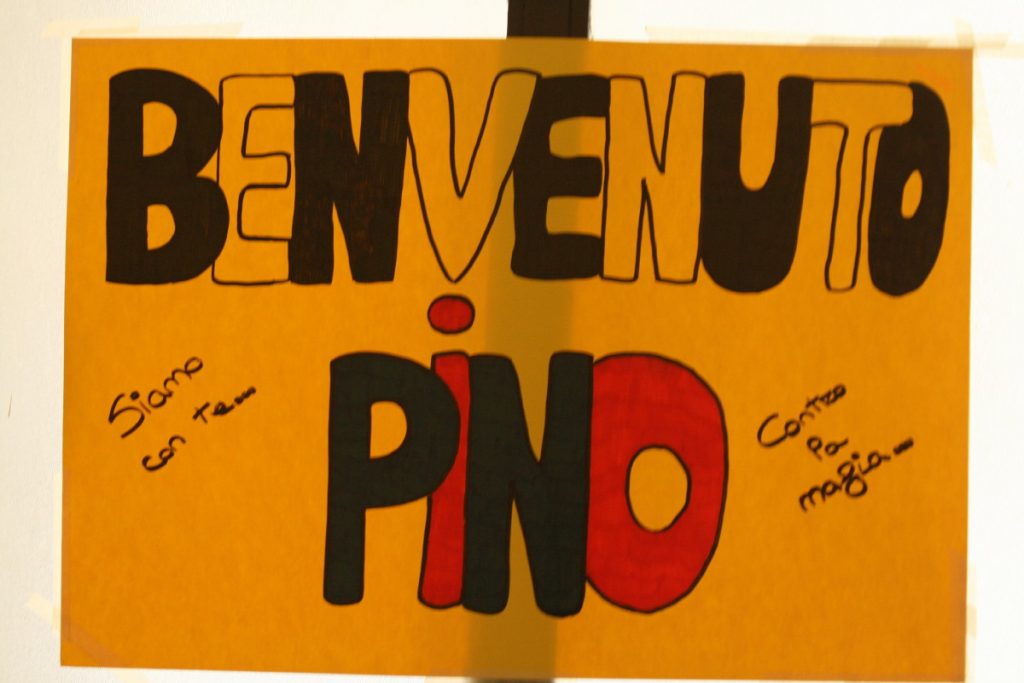 BENVENUTO
PiNO
Siamo
con te...
Contro
la
magia...